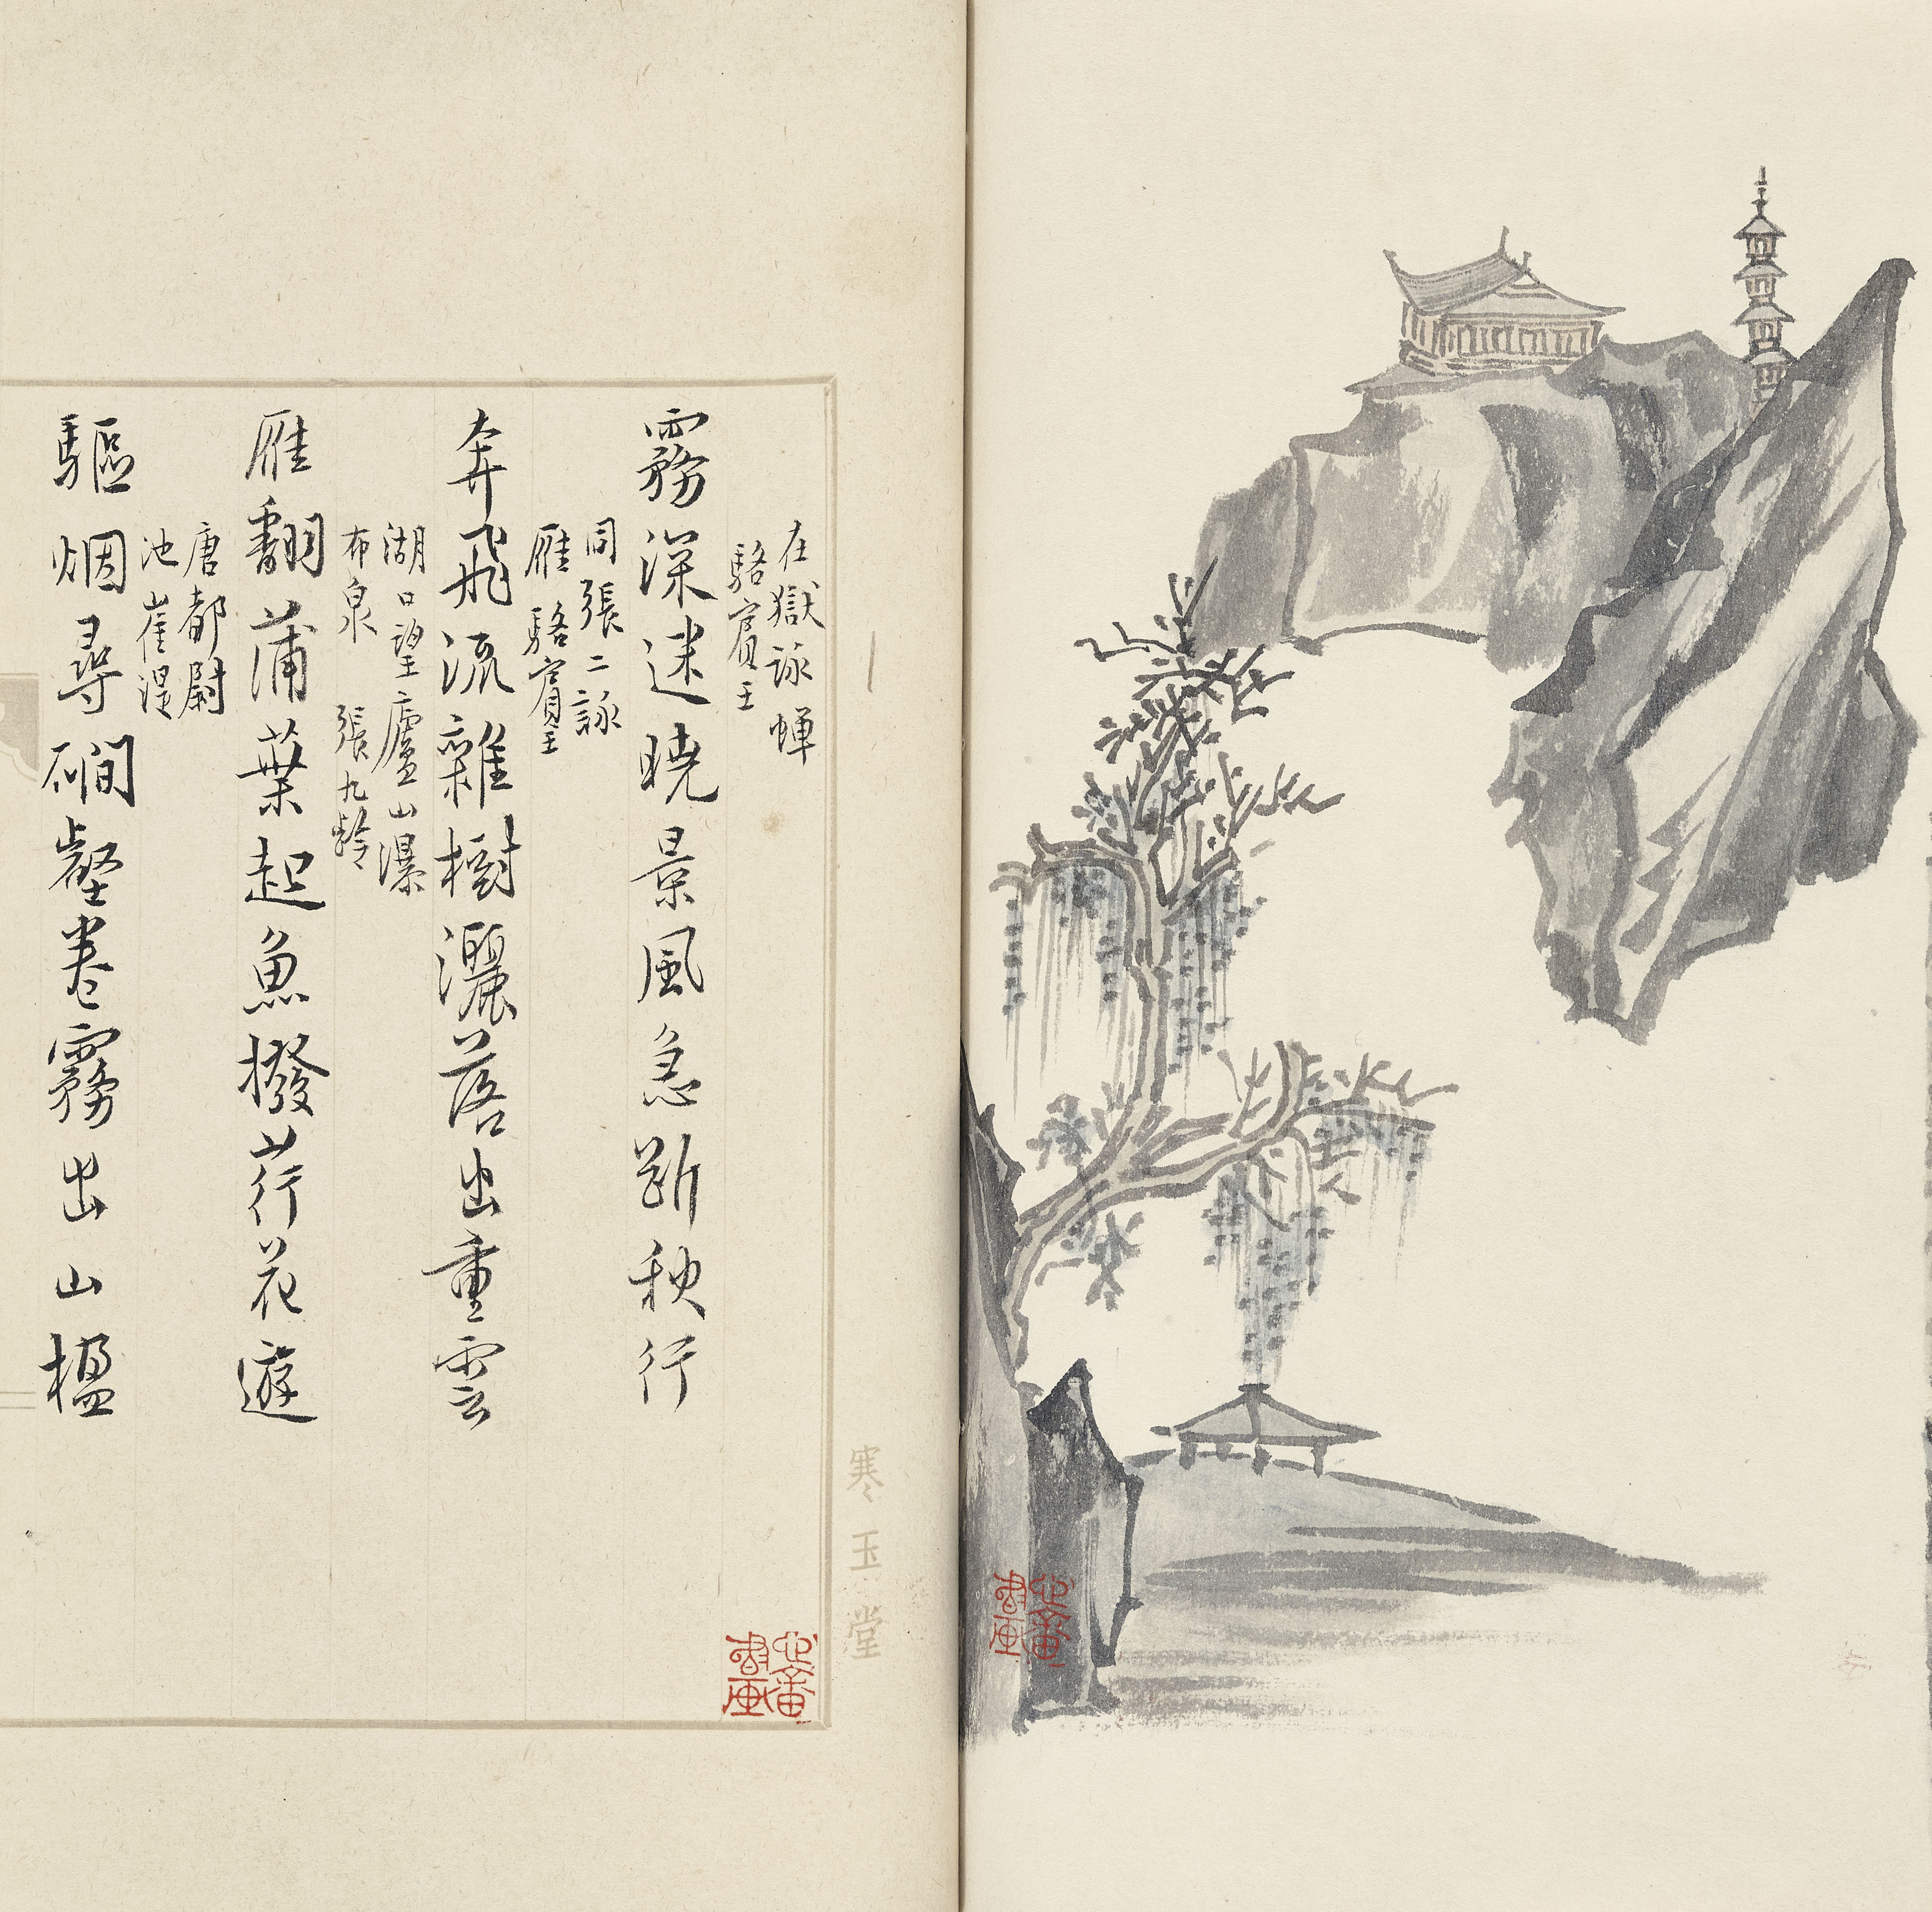 心畬
書畫
寒玉堂
在獄詠蟬
駱賓王
霧深迷曉景風急斷秋行
同張二詠
雁 駱賓王
奔飛流雜樹灑落出重雲
湖口望廬山瀑
布泉 張九齡
雁翻蒲葉起魚撥荇花遊
唐都尉
池 崔湜
驅烟尋磵壑卷霧出山楹
心畬
書畫